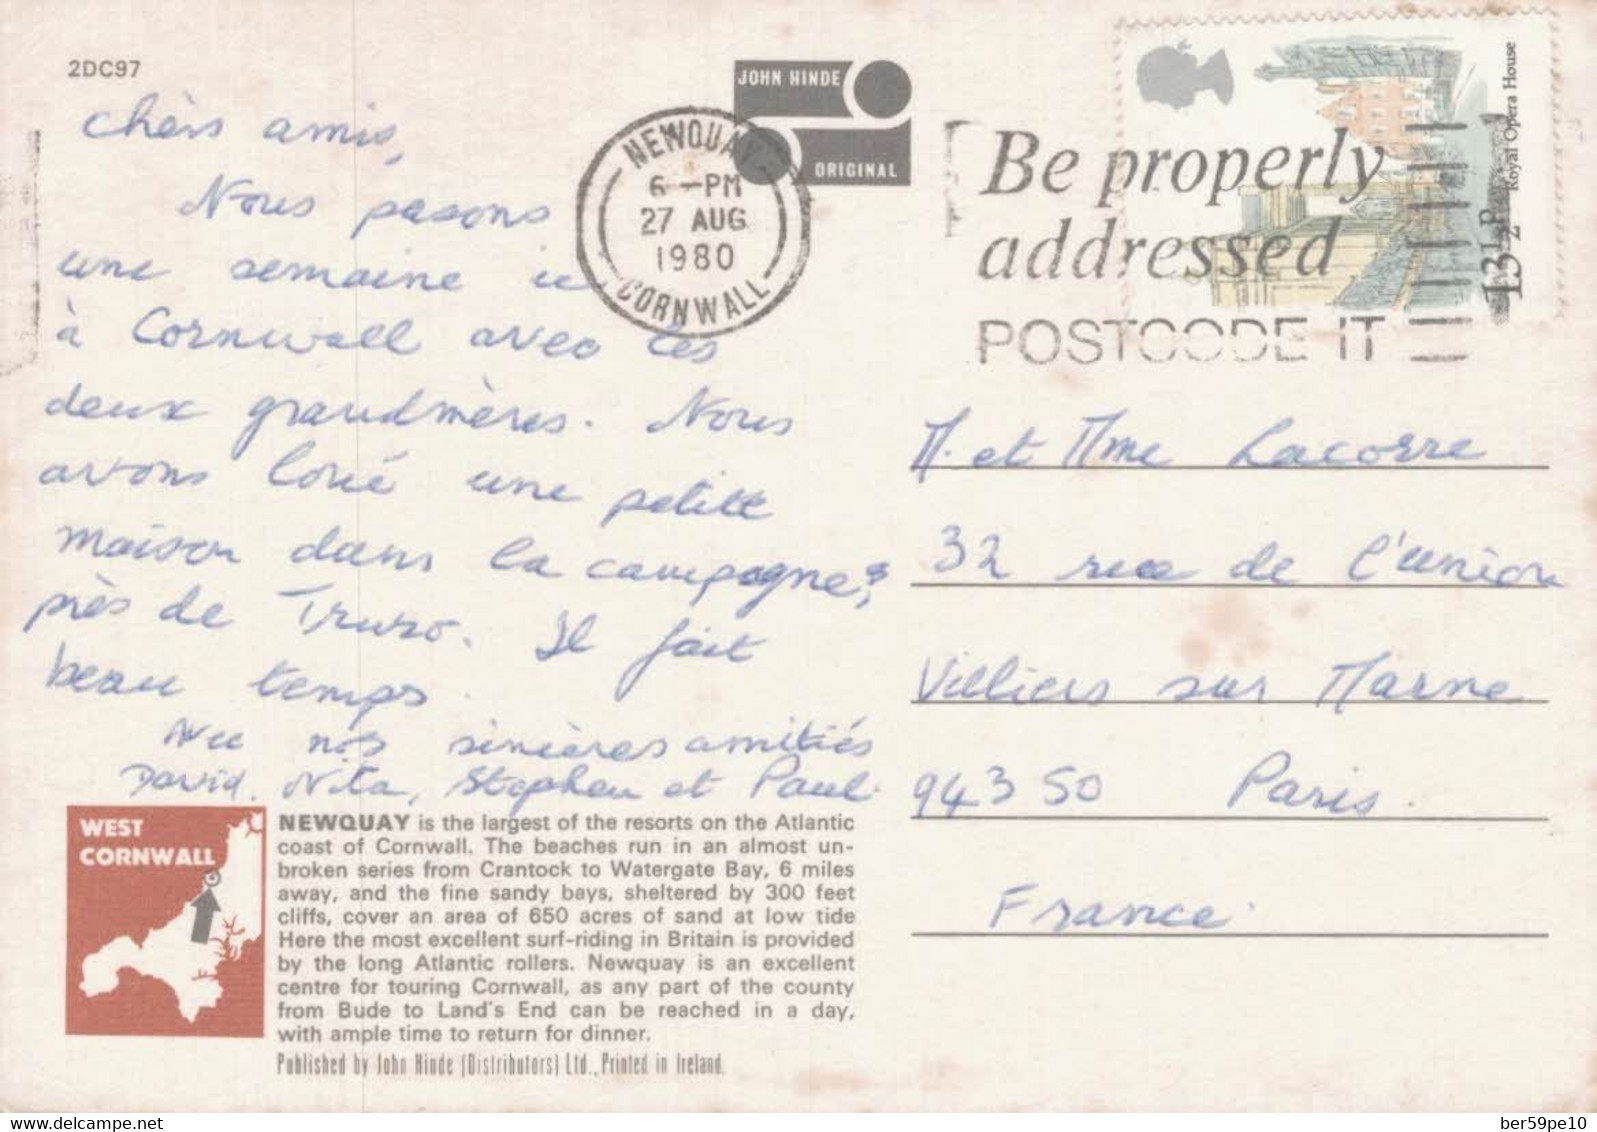 2DC97
JOHN HINDE
ORIGINAL
NEWQUAY
6 - PM
27 AUG
1980
CORNWALL
Be properly
addressed
POSTCODE IT
Royal Opera House
13½P
chèrs amis,
Nous pasons
une semaine ici
à Cornwall avec les
deux grandmères. Nous
avons loué une petite
maison dans la campagne,
près de Truro. Il fait
beau temps.
Avec nos sincères amitiés
David, Nita, Stephen et Paul.
M. et Mme Lacorre
32 rue de l'union
Villiers sur Marne
94350 Paris.
France.
WEST
CORNWALL
NEWQUAY is the largest of the resorts on the Atlantic
coast of Cornwall. The beaches run in an almost un-
broken series from Crantock to Watergate Bay, 6 miles
away, and the fine sandy bays, sheltered by 300 feet
cliffs, cover an area of 650 acres of sand at low tide
Here the most excellent surf-riding in Britain is provided
by the long Atlantic rollers. Newquay is an excellent
centre for touring Cornwall, as any part of the county
from Bude to Land's End can be reached in a day,
with ample time to return for dinner.
Published by John Hinde (Distributors) Ltd., Printed in Ireland.
ber59pe10